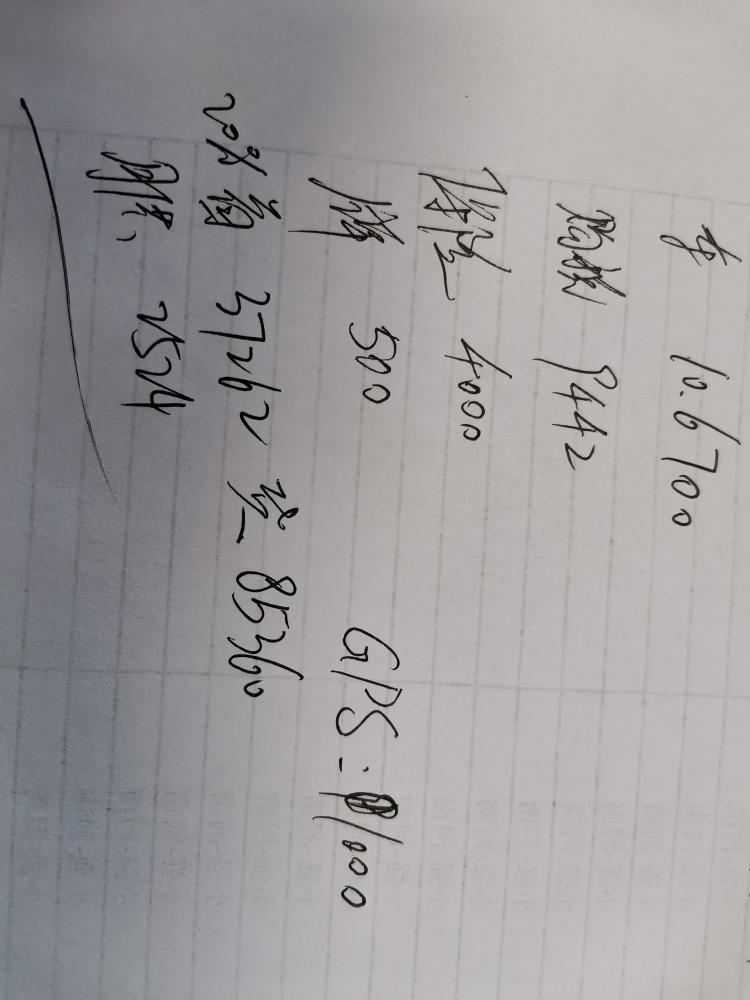 车 10.6700
购税 9442
保险 4000
牌 500 GPS:1000
20%首 37262 贷 85360
月供: 2524